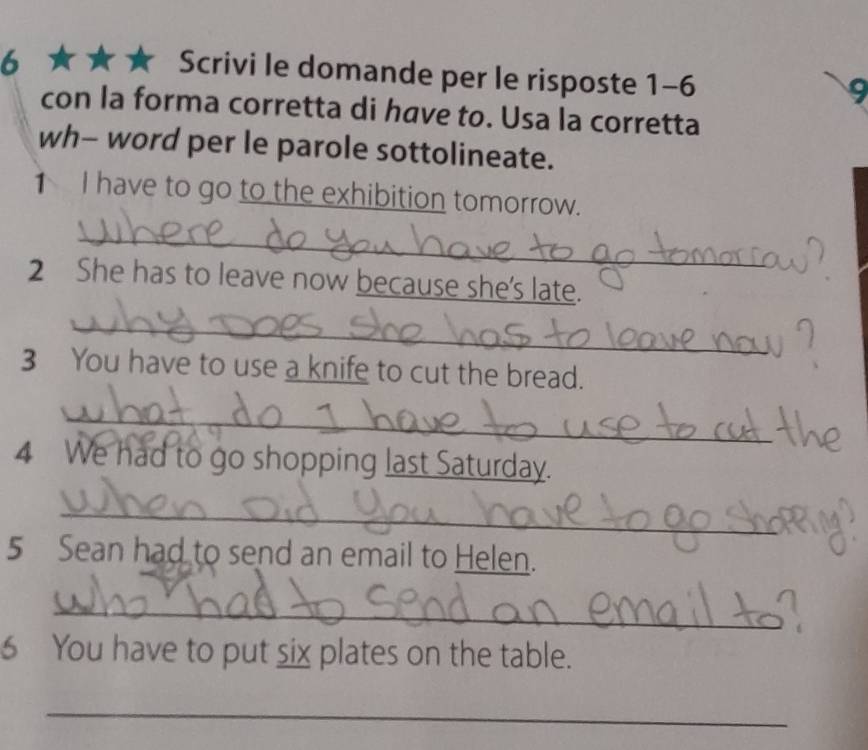 6 ★ ★ ★ Scrivi le domande per le risposte 1–6
9
con la forma corretta di have to. Usa la corretta
wh– word per le parole sottolineate.
1 I have to go to the exhibition tomorrow.
Where do you have to go tomorrow?
2 She has to leave now because she's late.
why Does she has to leave now?
3 You have to use a knife to cut the bread.
what do I have to use to cut the
bread?
4 We had to go shopping last Saturday.
When Did you have to go shopping?
5 Sean had to send an email to Helen.
Sean
who had to send an email to?
6 You have to put six plates on the table.